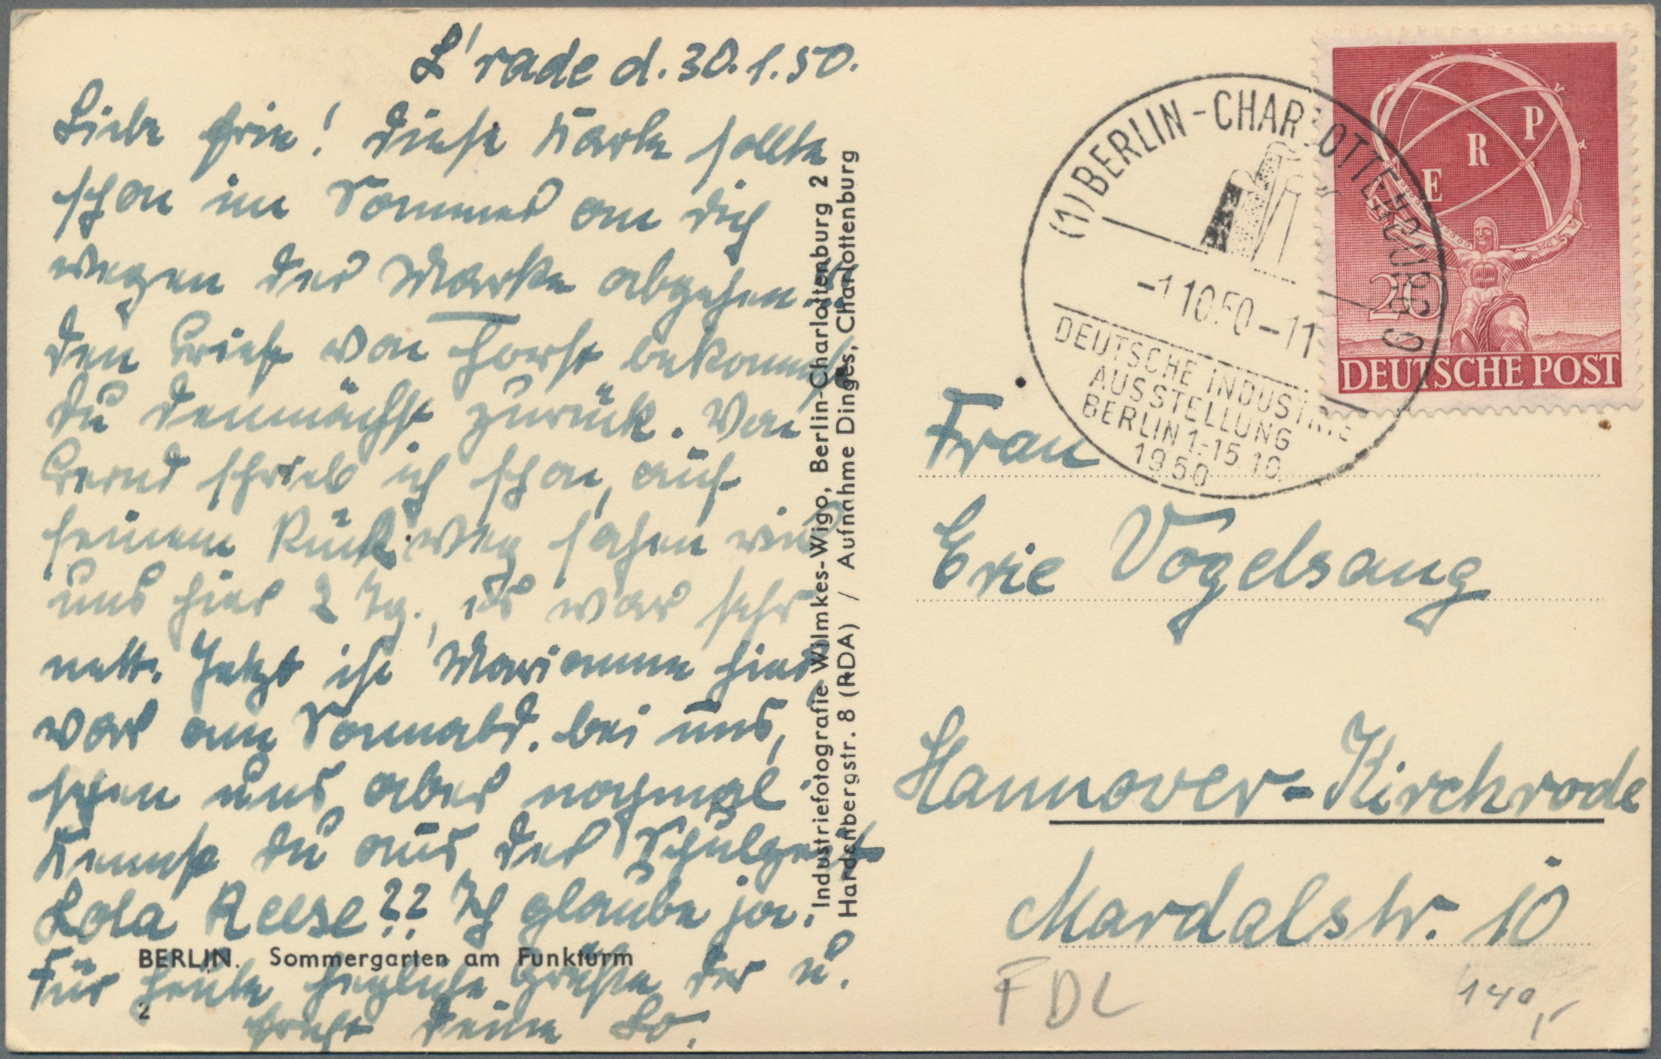 L'rade d. 30.1.50.
Liebe Erie! Diese Karte sollte
schon im Sommer an dich
wegen der Marke abgehen.
den Brief von Horst bekommst
du demnächst zurück. Von
Bernd schrieb ich schon, auf
seinem Rückweg sahen wir
uns hier 2 Tg., es war sehr
nett. Jetzt ist Marianne hier,
war am Sonnabd. bei uns,
sehen uns aber nochmal
Kennst du aus der Schulzeit
Lola Reese?? Ich glaube ja.
Für heute herzliche Grüße der u.
Deine Lo.
BERLIN. Sommergarten am Funkturm
2
Industriefotografie Wilmkes-Wigo, Berlin-Charlottenburg 2
Hardenbergstr. 8 (RDA) / Aufnahme Dinges, Charlottenburg
(1) BERLIN-CHARLOTTENBURG 9
-1.10.50-11
DEUTSCHE INDUSTRIE
AUSSTELLUNG
BERLIN 1.-15.10.
1950
ERP
20
DEUTSCHE POST
Frau
Erie Vogelsang
Hannover-Kirchrode
Mardalstr. 10
FDL
140,-